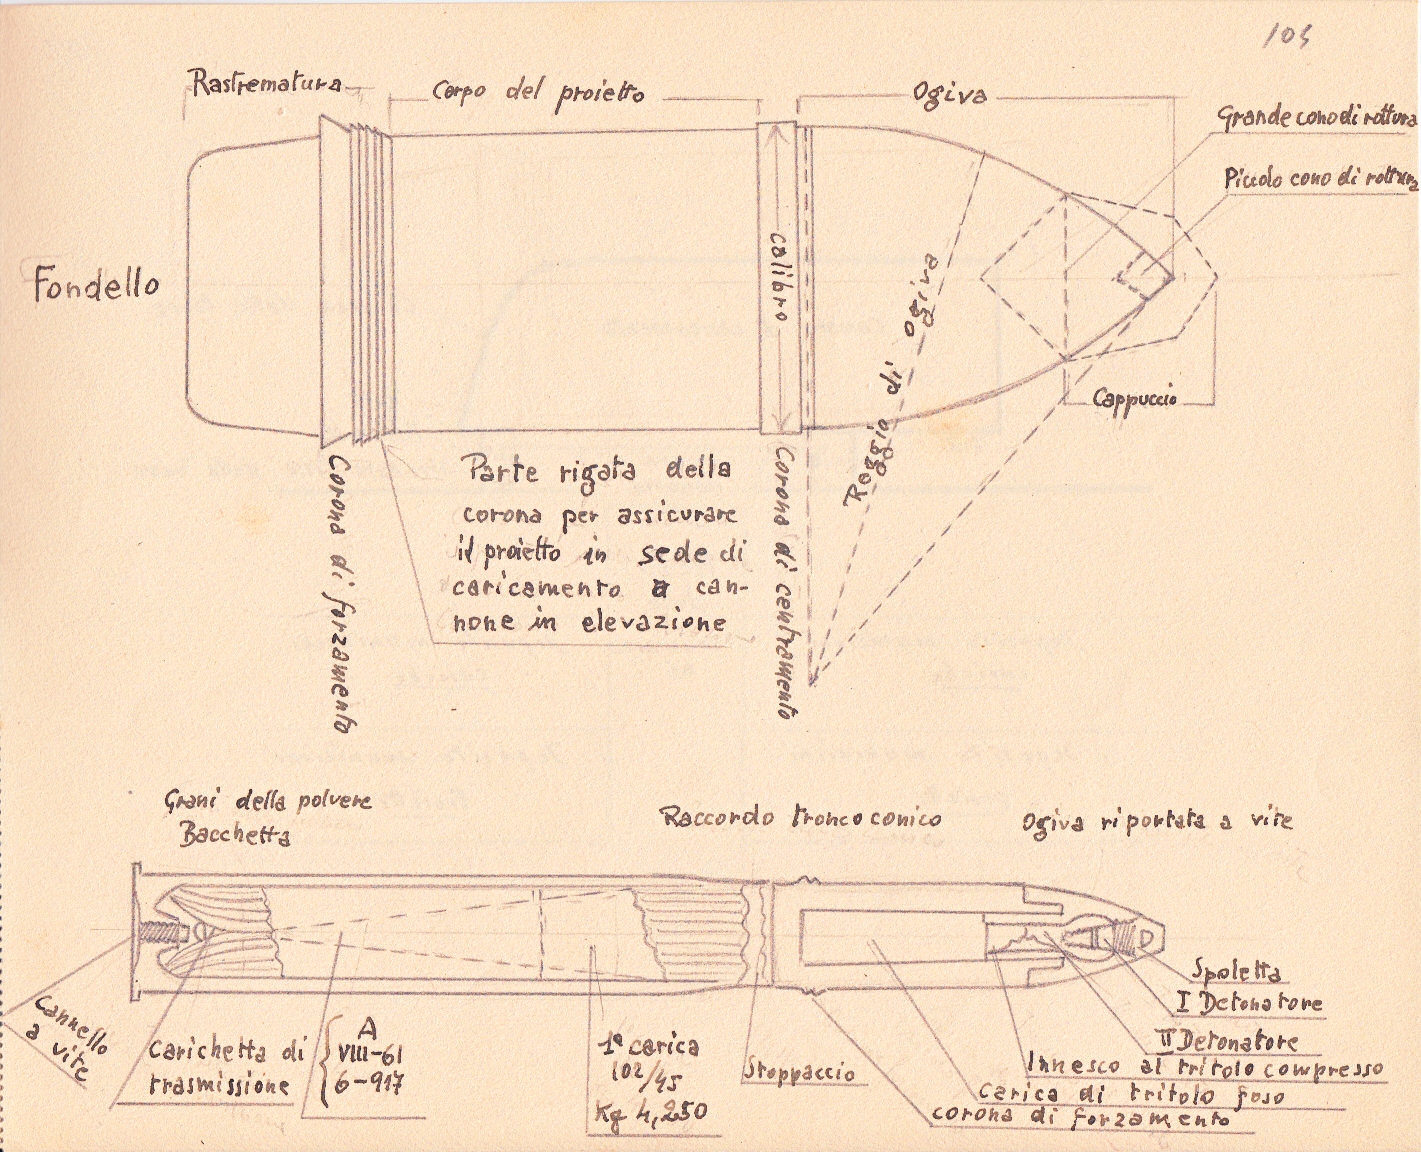 105
Rastrematura
Corpo del proietto
Ogiva
Grande cono di rottura
Piccolo cono di rottura
Fondello
calibro
Raggio di ogiva
Cappuccio
Corona di forzamento
Parte rigata della
corona per assicurare
il proietto in sede di
caricamento a can-
none in elevazione
Corona di centramento
Grani della polvere
Bacchetta
Raccordo tronco conico
Ogiva riportata a vite
Cannello
a vite
Carichetta di
trasmissione
A
VIII-61
6-917
1ª carica
102/45
Kg 4,250
Stoppaccio
Spoletta
I Detonatore
II Detonatore
Innesco al tritolo compresso
carica di tritolo fuso
corona di forzamento